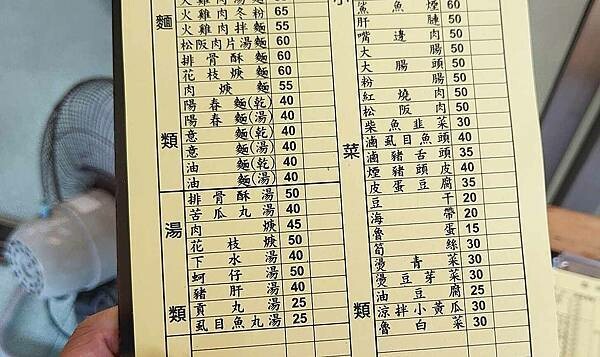 麵類
火雞肉湯麵 65
火雞肉冬粉 65
火雞肉拌麵 55
松阪肉片湯麵 60
排骨酥麵 60
花枝焿麵 60
肉焿麵 55
陽春麵(乾) 40
陽春麵(湯) 40
意麵(乾) 40
意麵(湯) 40
油麵(乾) 40
油麵(湯) 40
湯類
排骨酥湯 50
苦瓜丸湯 40
肉焿 45
花枝焿 50
下水湯 40
蚵仔湯 50
豬肝湯 40
貢丸湯 25
虱目魚丸湯 25
小菜類
鯊魚煙 60
肝腱 50
嘴邊肉 50
大腸 50
大腸頭 50
粉腸 50
紅燒肉 50
松阪肉 50
柴魚韭菜 30
滷虱目魚頭 40
滷豬舌頭 35
煙豬頭皮 40
皮蛋豆腐 35
豆干 20
海帶 20
魯蛋 15
筍絲 30
燙青菜 30
燙豆芽菜 30
油豆腐 25
涼拌小黃瓜 30
魯白菜 30